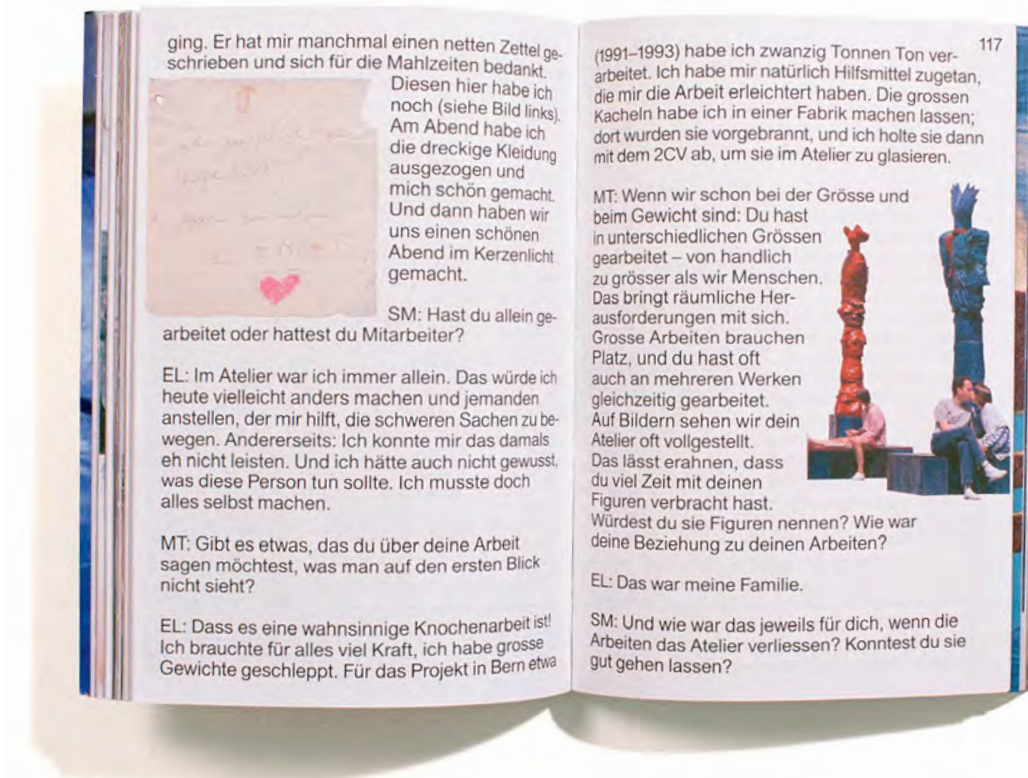 ging. Er hat mir manchmal einen netten Zettel ge-
schrieben und sich für die Mahlzeiten bedankt.
Diesen hier habe ich
noch (siehe Bild links).
Am Abend habe ich
die dreckige Kleidung
ausgezogen und
mich schön gemacht.
Und dann haben wir
uns einen schönen
Abend im Kerzenlicht
gemacht.
SM: Hast du allein ge-
arbeitet oder hattest du Mitarbeiter?
EL: Im Atelier war ich immer allein. Das würde ich
heute vielleicht anders machen und jemanden
anstellen, der mir hilft, die schweren Sachen zu be-
wegen. Andererseits: Ich konnte mir das damals
eh nicht leisten. Und ich hätte auch nicht gewusst,
was diese Person tun sollte. Ich musste doch
alles selbst machen.
MT: Gibt es etwas, das du über deine Arbeit
sagen möchtest, was man auf den ersten Blick
nicht sieht?
EL: Dass es eine wahnsinnige Knochenarbeit ist!
Ich brauchte für alles viel Kraft, ich habe grosse
Gewichte geschleppt. Für das Projekt in Bern etwa
117
(1991–1993) habe ich zwanzig Tonnen Ton ver-
arbeitet. Ich habe mir natürlich Hilfsmittel zugetan,
die mir die Arbeit erleichtert haben. Die grossen
Kacheln habe ich in einer Fabrik machen lassen;
dort wurden sie vorgebrannt, und ich holte sie dann
mit dem 2CV ab, um sie im Atelier zu glasieren.
MT: Wenn wir schon bei der Grösse und
beim Gewicht sind: Du hast
in unterschiedlichen Grössen
gearbeitet – von handlich
zu grösser als wir Menschen.
Das bringt räumliche Her-
ausforderungen mit sich.
Grosse Arbeiten brauchen
Platz, und du hast oft
auch an mehreren Werken
gleichzeitig gearbeitet.
Auf Bildern sehen wir dein
Atelier oft vollgestellt.
Das lässt erahnen, dass
du viel Zeit mit deinen
Figuren verbracht hast.
Würdest du sie Figuren nennen? Wie war
deine Beziehung zu deinen Arbeiten?
EL: Das war meine Familie.
SM: Und wie war das jeweils für dich, wenn die
Arbeiten das Atelier verliessen? Konntest du sie
gut gehen lassen?